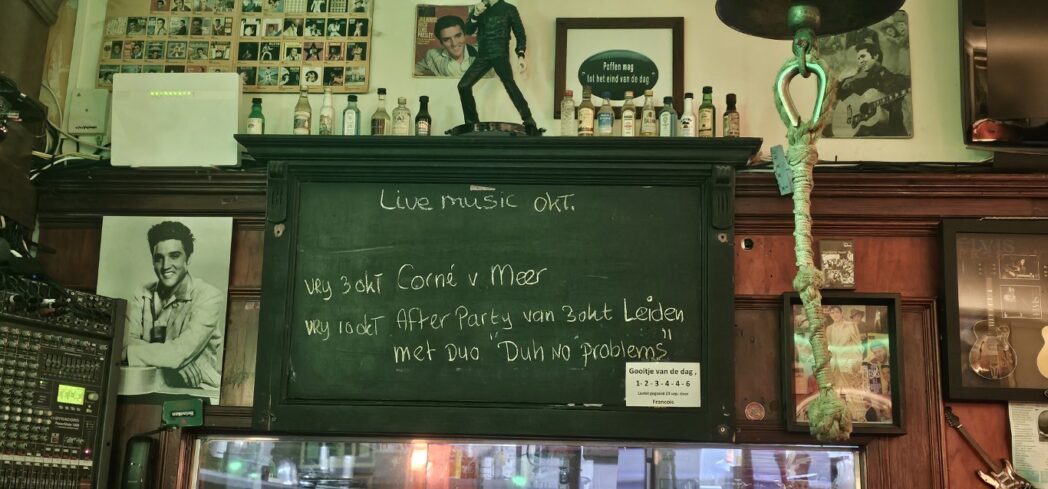 ELVIS PRESLEY
Poffen mag
tot het eind van de dag
Live music okt.
vry 3 okt Corné v Meer
vry 10 okt After Party van 3 okt Leiden
met Duo "Duh No problems"
Gooitje van de dag ,
1- 2 - 3 - 4 - 4 - 6
Francois
Heineken
DYNACORD
ELVIS